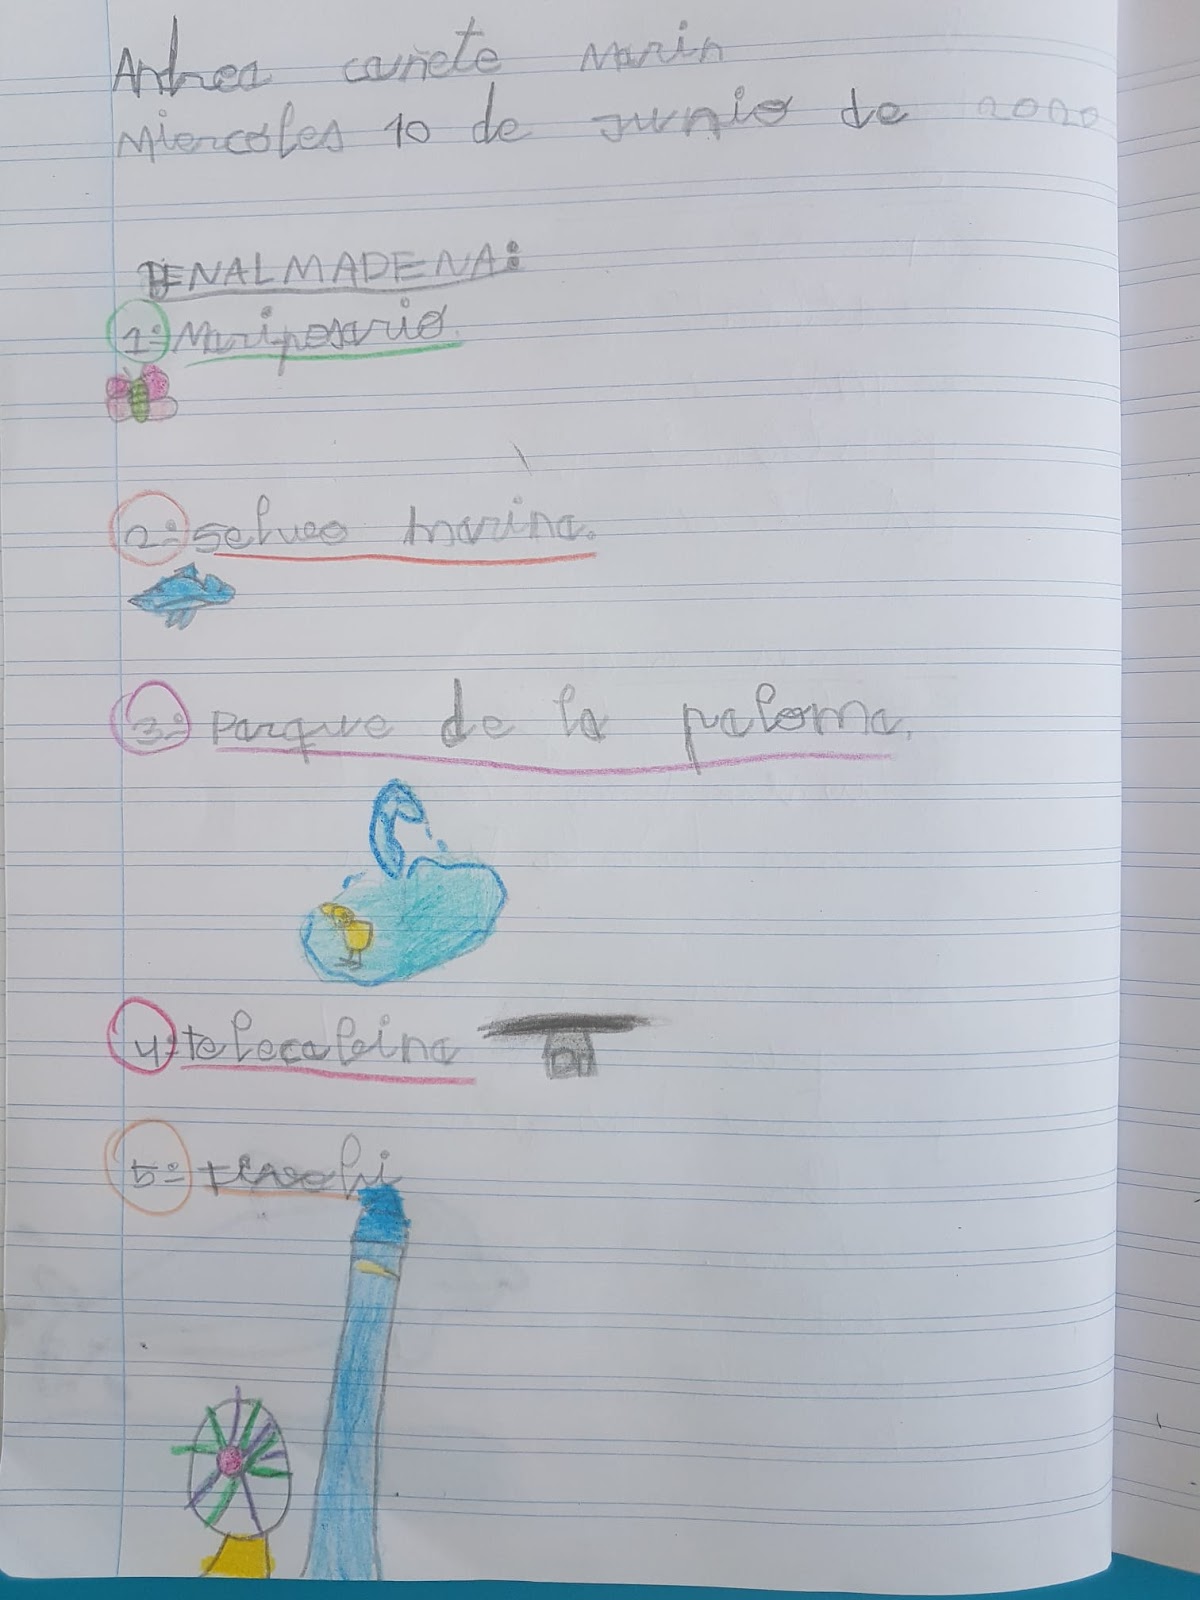 Andrea cañete Marin
Miercoles 10 de Junio de 2020
BENALMADENA:
1º Mariposario.
2º selvao marina.
3º Parque de la paloma.
4º telecaleina
5º tivoli